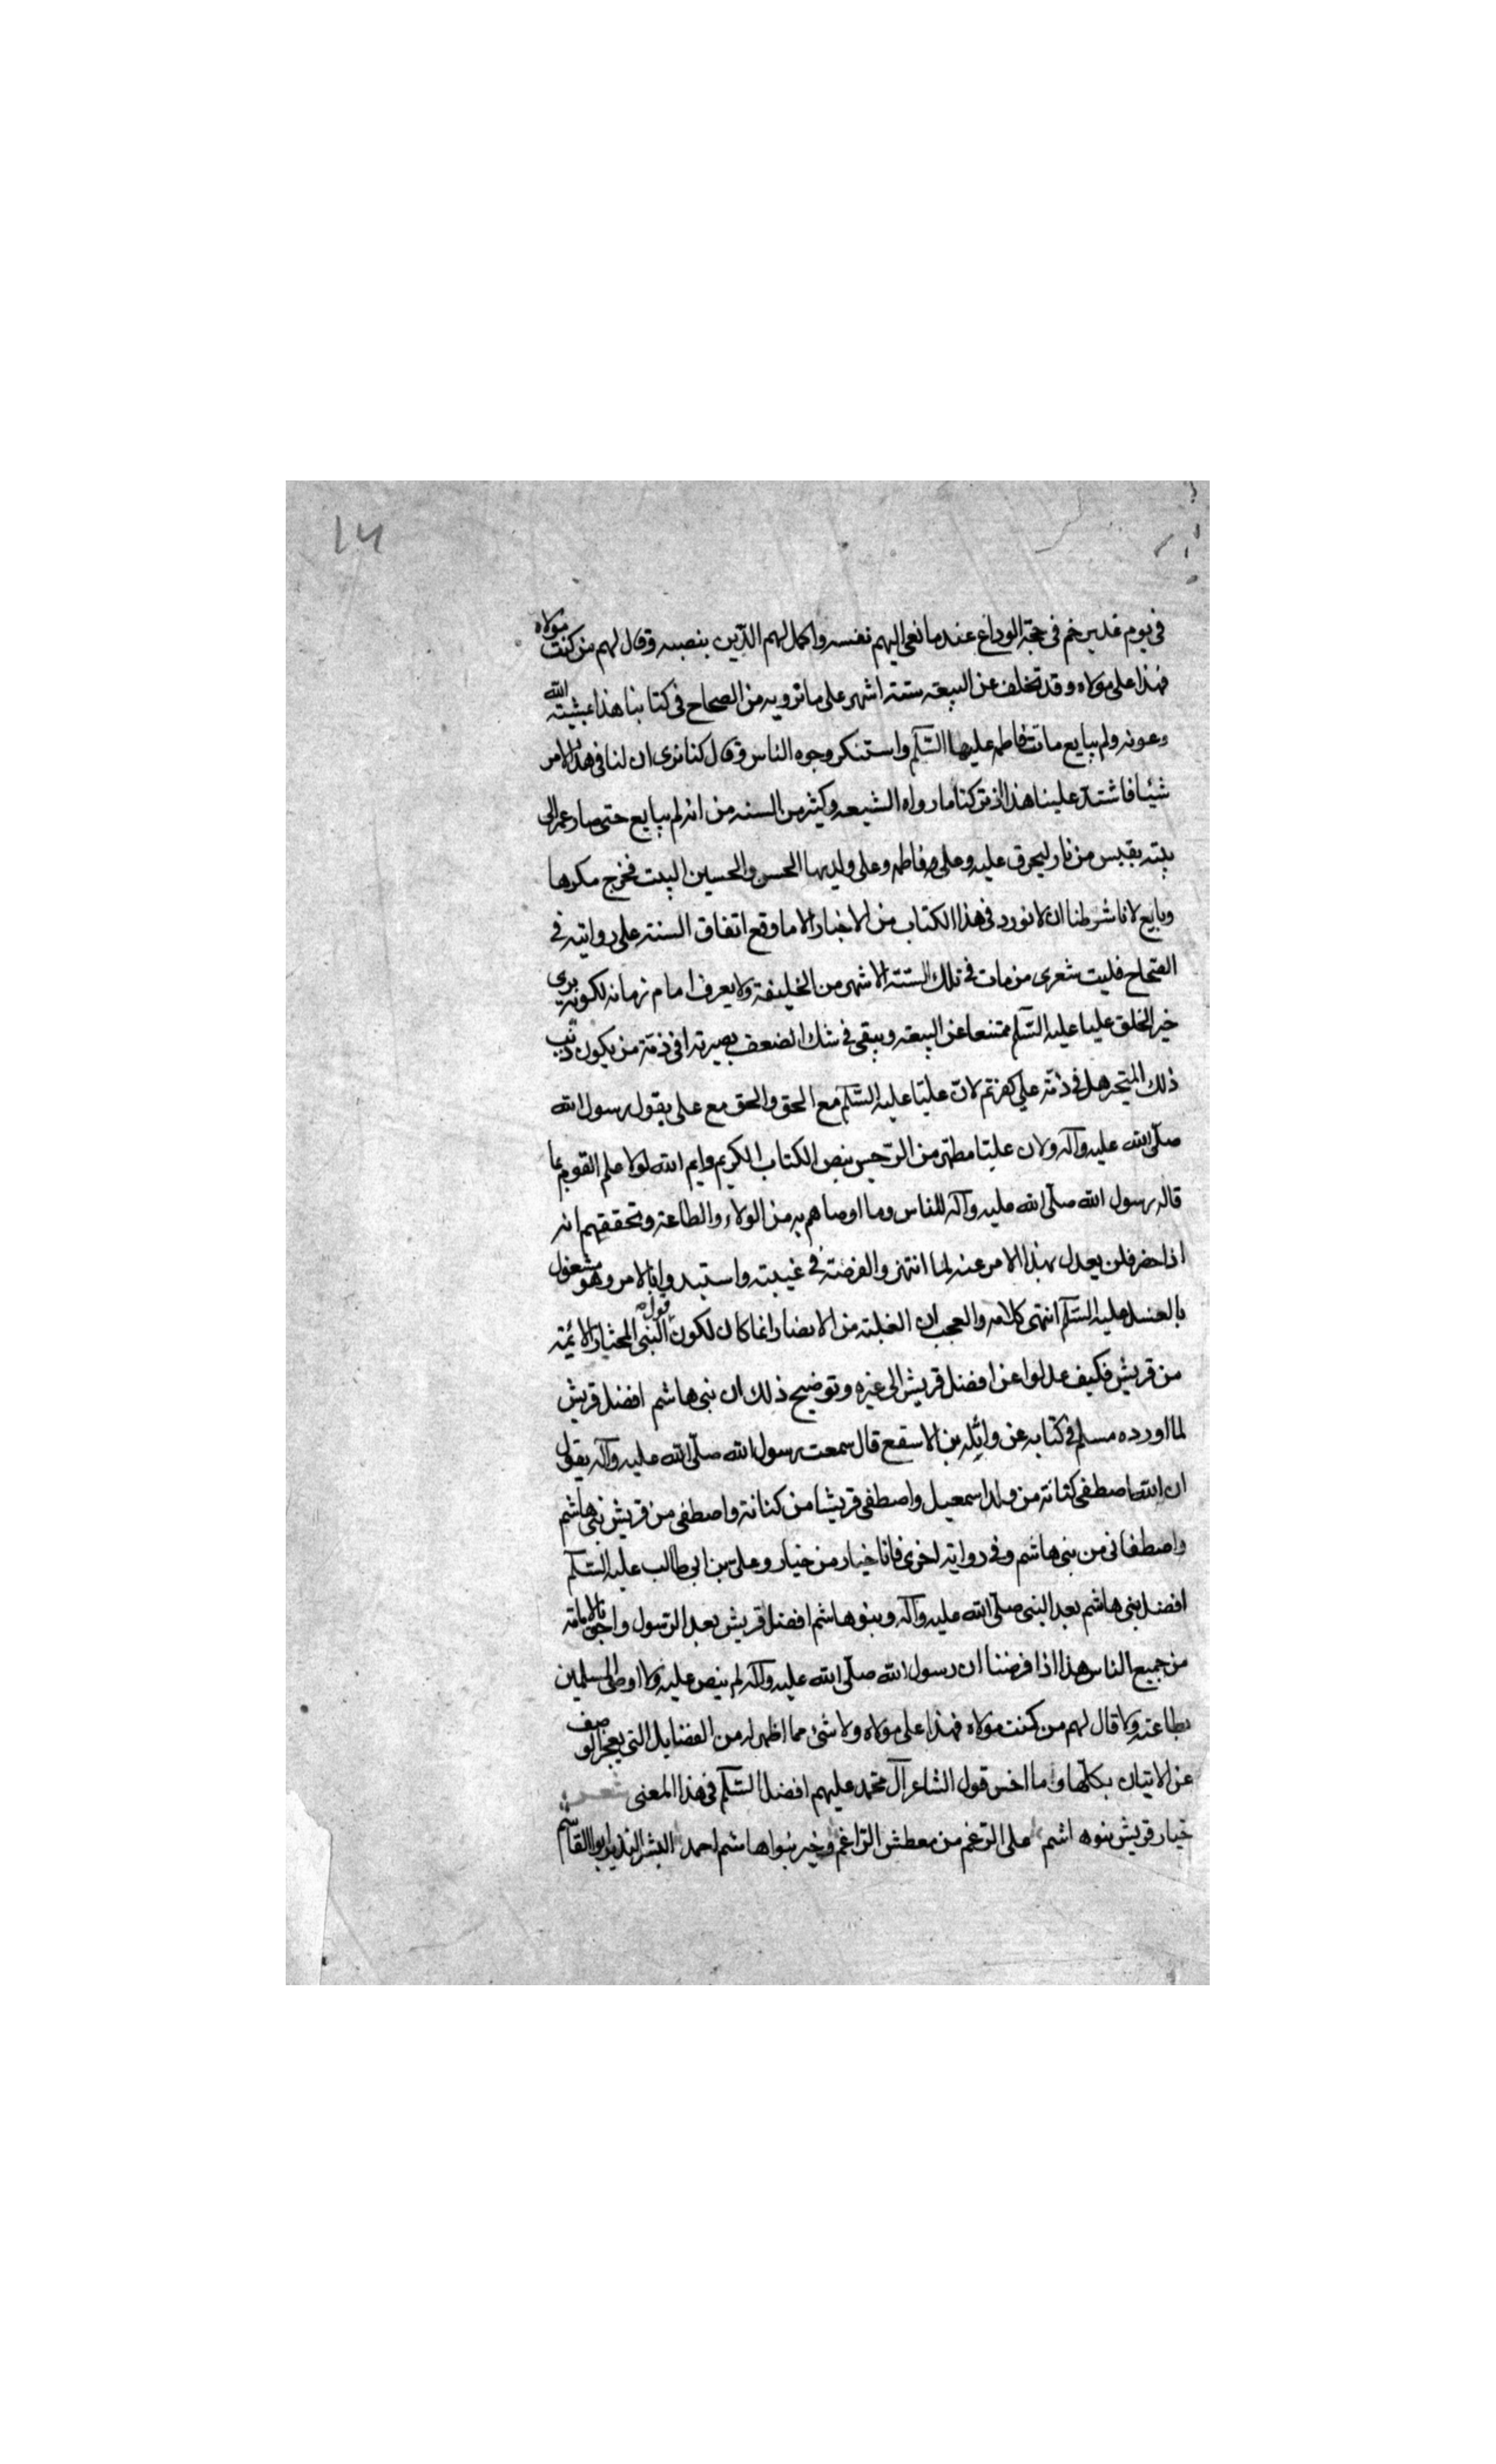 ١٣
في يوم غدير خم في حجة الوداع عند ما نعى اليهم نفسه واكمل لهم الدين بنصبه وقال لهم من كنت مولاه
فهذا على مولاه وقد تخلف عن البيعة ستة اشهر على ما نرويه من الصحاح في كتابنا هذا بمشية الله
وعونه ولم يبايع ما تت فاطمه عليها السلم واستنكر وجوه الناس وقال كنا نرى ان لنا في هذا الامر
شيئا فاشتد علينا هذا تركنا ما رواه الشيعه وكثير من السنه من انه لم يبايع حتى صار عمر الى
بيته بقبس من نار ليحرق عليه وعلى فاطمه وعلى ولديها الحسن والحسين البيت فخرج مكرها
وبايع لانا شرطنا ان لا نورد في هذا الكتاب من الاخبار الا ما وقع اتفاق السنة على روايته في
الصحاح فليت شعرى من مات في تلك الستة الاشهر من الخليفة ولا يعرف امام زمانه لكونه يرى
خير الخلق عليا عليه السلم ممتنعا عن البيعة ويبقى في شك لضعف بصيرته افى ذمة من يكون ذنب
ذلك المتحير هل في ذمة على كفرتم لان عليا عليه السلم مع الحق والحق مع على بقول رسول الله
صلى الله عليه وآله ولان عليا مطهر من الرجس بنص الكتاب الكريم وايم الله لولا علم القوم بما
قاله رسول الله صلى الله عليه وآله للناس وما اوصاهم به من الولاء والطاعة وتحققهم انه
اذا حضر فلن يعدل بهذا الامر عنه لما انتهزوا الفرصة في غيبته واستبدوا بالامر وهو مشغول
بالغسل عليه السلم انتهى كلامه والعجب ان الغلبة من الانصار انما كان لكون قول النبى المختار الائمة
من قريش فكيف عدلوا عن افضل قريش الى غيره وتوضيح ذلك ان بنى هاشم افضل قريش
لما اورده مسلم في كتابه عن واثله بن الاسقع قال سمعت رسول الله صلى الله عليه وآله يقول
ان الله اصطفى كنانة من ولد اسمعيل واصطفى قريشا من كنانة واصطفى من قريش بنى هاشم
واصطفانى من بنى هاشم وفى رواية اخرى فانا خيار من خيار وعلى بن ابى طالب عليه السلم
افضل بنى هاشم بعد النبى صلى الله عليه وآله وبنو هاشم افضل قريش بعد الرسول واحق بالامامة
من جميع الناس هذا اذا فرضنا ان رسول الله صلى الله عليه وآله لم ينص عليه ولا اوصى المسلمين
بطاعته ولا قال لهم من كنت مولاه فهذا على مولاه ولا شئ مما اظهر له من الفضايل التى يعجز الوصف
عن الاتيان بكلها وما احسن قول الشاعر آل محمد عليهم افضل السلم في هذا المعنى شعر
خيار قريش بنو هاشم على الرغم من معطش الراغم وخير بنوا هاشم احمد البشير النذير ابو القاسم